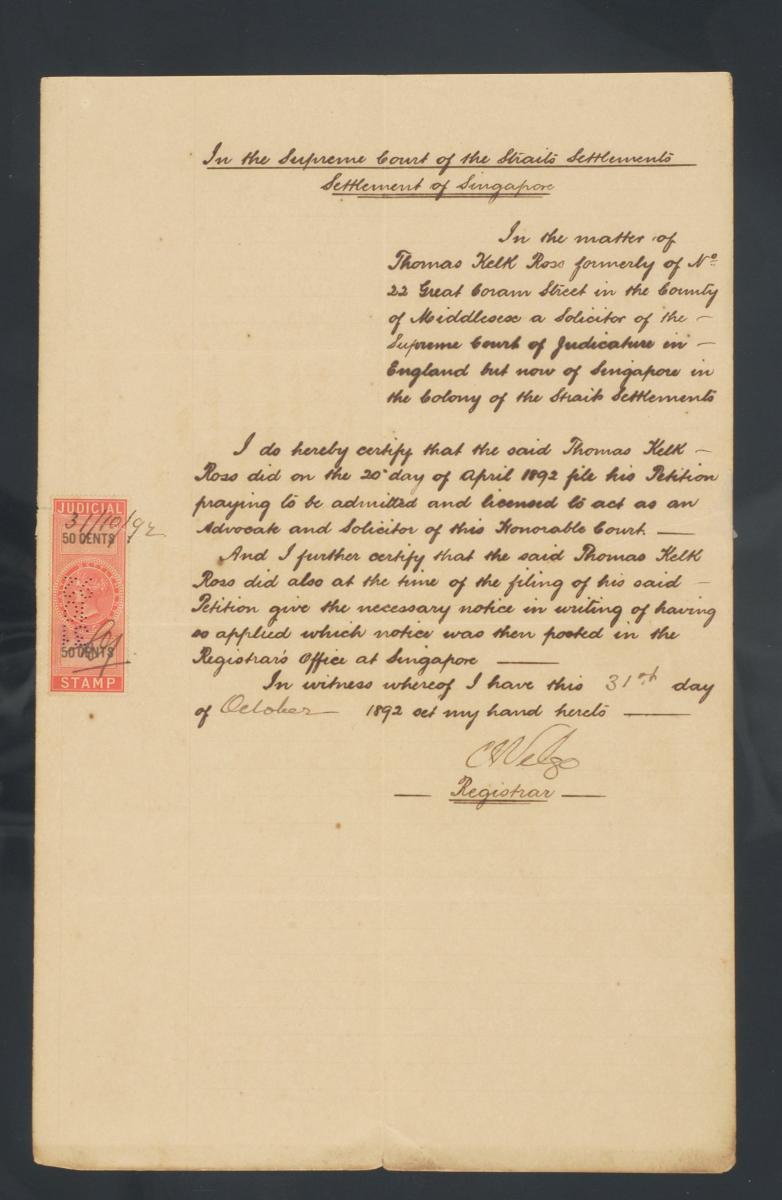 In the Supreme Court of the Straits Settlements
Settlement of Singapore
In the matter of
Thomas Kelk Ross formerly of No.
22 Great Coram Street in the County
of Middlesex a Solicitor of the —
Supreme Court of Judicature in —
England but now of Singapore in
the Colony of the Straits Settlements
I do hereby certify that the said Thomas Kelk —
Ross did on the 20th day of April 1892 file his Petition
praying to be admitted and licensed to act as an
Advocate and Solicitor of this Honorable Court. —
And I further certify that the said Thomas Kelk
Ross did also at the time of the filing of his said —
Petition give the necessary notice in writing of having
so applied which notice was then posted in the
Registrar's Office at Singapore —
In witness whereof I have this 31st day
of October 1892 set my hand hereto —
— Registrar —
JUDICIAL
31/10/92
50 CENTS
50 CENTS
STAMP